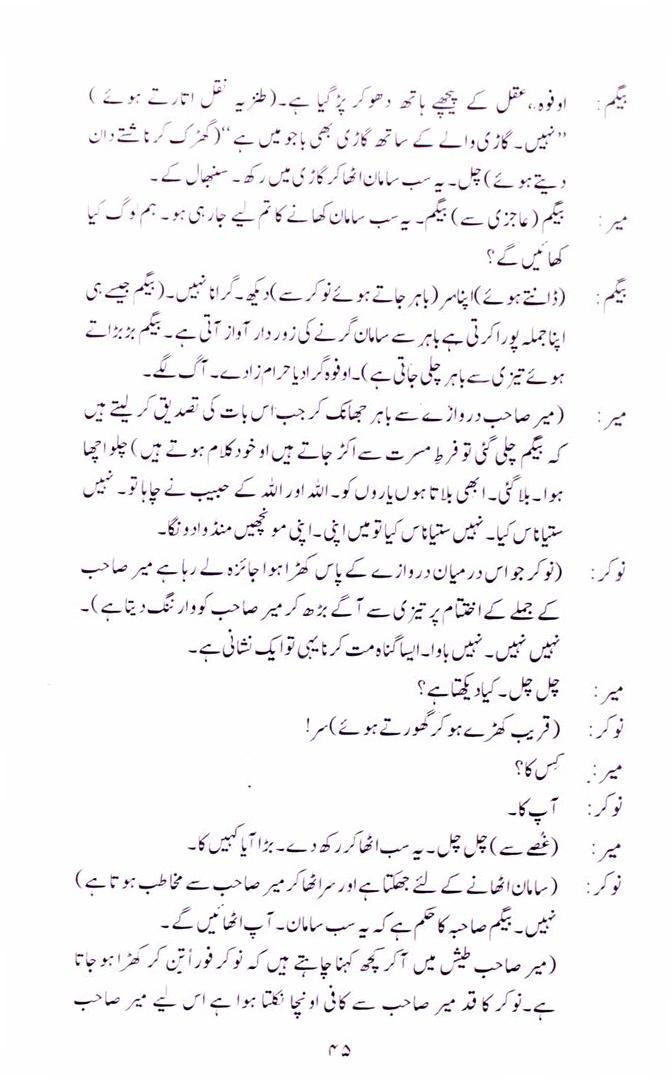 بیگم: اوفوہ، عقل کے پیچھے ہاتھ دھو کر پڑ گیا ہے۔ (طنزیہ نقل اتارتے ہوئے)
”نہیں۔ گاڑی والے کے ساتھ گاڑی بھی باجو میں ہے“ (گھڑک کر ناشتے دان
دیتے ہوئے) چل۔ یہ سب سامان اٹھا کر گاڑی میں رکھ۔ سنبھال کے۔
میر: بیگم (عاجزی سے) بیگم۔ یہ سب سامان کھانے کا تم لیے جا رہی ہو۔ ہم لوگ کیا
کھائیں گے؟
بیگم: (ڈانتے ہوئے) اپنا سر (باہر جاتے ہوئے نوکر سے) دیکھ۔ گرانا نہیں۔ (بیگم جیسے ہی
اپنا جملہ پورا کرتی ہے باہر سے سامان گرنے کی زور دار آواز آتی ہے۔ بیگم بڑبڑاتے
ہوئے تیزی سے باہر چلی جاتی ہے)۔ اوفوہ گرا دیا حرام زادے۔ آگ لگے۔
میر: (میر صاحب دروازے سے باہر جھانک کر جب اس بات کی تصدیق کر لیتے ہیں
کہ بیگم چلی گئی تو فرطِ مسرت سے اکڑ جاتے ہیں او خود کلام ہوتے ہیں) چلو اچھا
ہوا۔ بلا گئی۔ ابھی بلاتا ہوں یاروں کو۔ اللہ اور اللہ کے حبیب نے چاہا تو۔ نہیں
ستیاناس کیا۔ نہیں ستیاناس کیا تو میں اپنی۔ اپنی مونچھیں منڈوا دونگا۔
نوکر: (نوکر جو اس درمیان دروازے کے پاس کھڑا ہوا جائزہ لے رہا ہے میر صاحب
کے جملے کے اختتام پر تیزی سے آگے بڑھ کر میر صاحب کو وارننگ دیتا ہے)۔
نہیں نہیں۔ نہیں باوا۔ ایسا گناہ مت کرنا یہی تو ایک نشانی ہے۔
میر: چل چل۔ کیا دیکھتا ہے؟
نوکر: (قریب کھڑے ہو کر گھورتے ہوئے) سر!
میر: کِس کا؟
نوکر: آپ کا۔
میر: (غُصے سے) چل چل۔ یہ سب اٹھا کر رکھ دے۔ بڑا آیا کہیں کا۔
نوکر: (سامان اٹھانے کے لئے جھکتا ہے اور سر اٹھا کر میر صاحب سے مخاطب ہوتا ہے)
نہیں۔ بیگم صاحبہ کا حکم ہے کہ یہ سب سامان۔ آپ اٹھائیں گے۔
(میر صاحب طیش میں آ کر کچھ کہنا چاہتے ہیں کہ نوکر فوراً تن کر کھڑا ہو جاتا
ہے۔ نوکر کا قد میر صاحب سے کافی اونچا نکلتا ہوا ہے اس لیے میر صاحب
۴۵